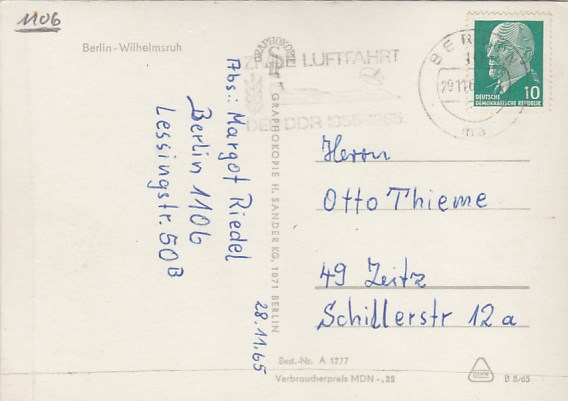 1106
Berlin-Wilhelmsruh
Abs.: Margot Riedel
Berlin 1106
Lessingstr. 50B
28.11.65
GRAPHOKOPIE
GRAPHOKOPIE H. SANDER KG, 1071 BERLIN
LUFTFAHRT
DER DDR 1955-1965
BERLIN
29.11.6
ma
DEUTSCHE
DEMOKRATISCHE REPUBLIK
10
Herrn
Otto Thieme
49 Zeitz
Schillerstr 12a
Best.-Nr. A 1277
Verbraucherpreis MDN -,25
B 8/65